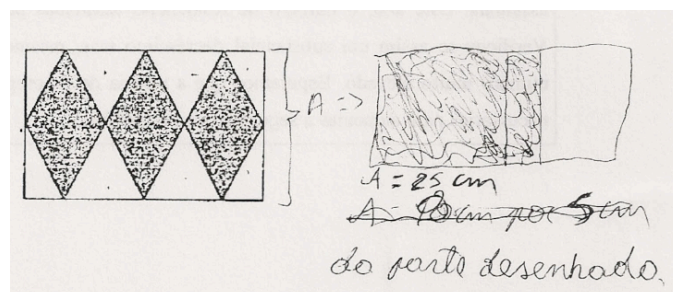 A =>
A = 25 cm
A = 10 cm por 5 cm
da parte desenhada.